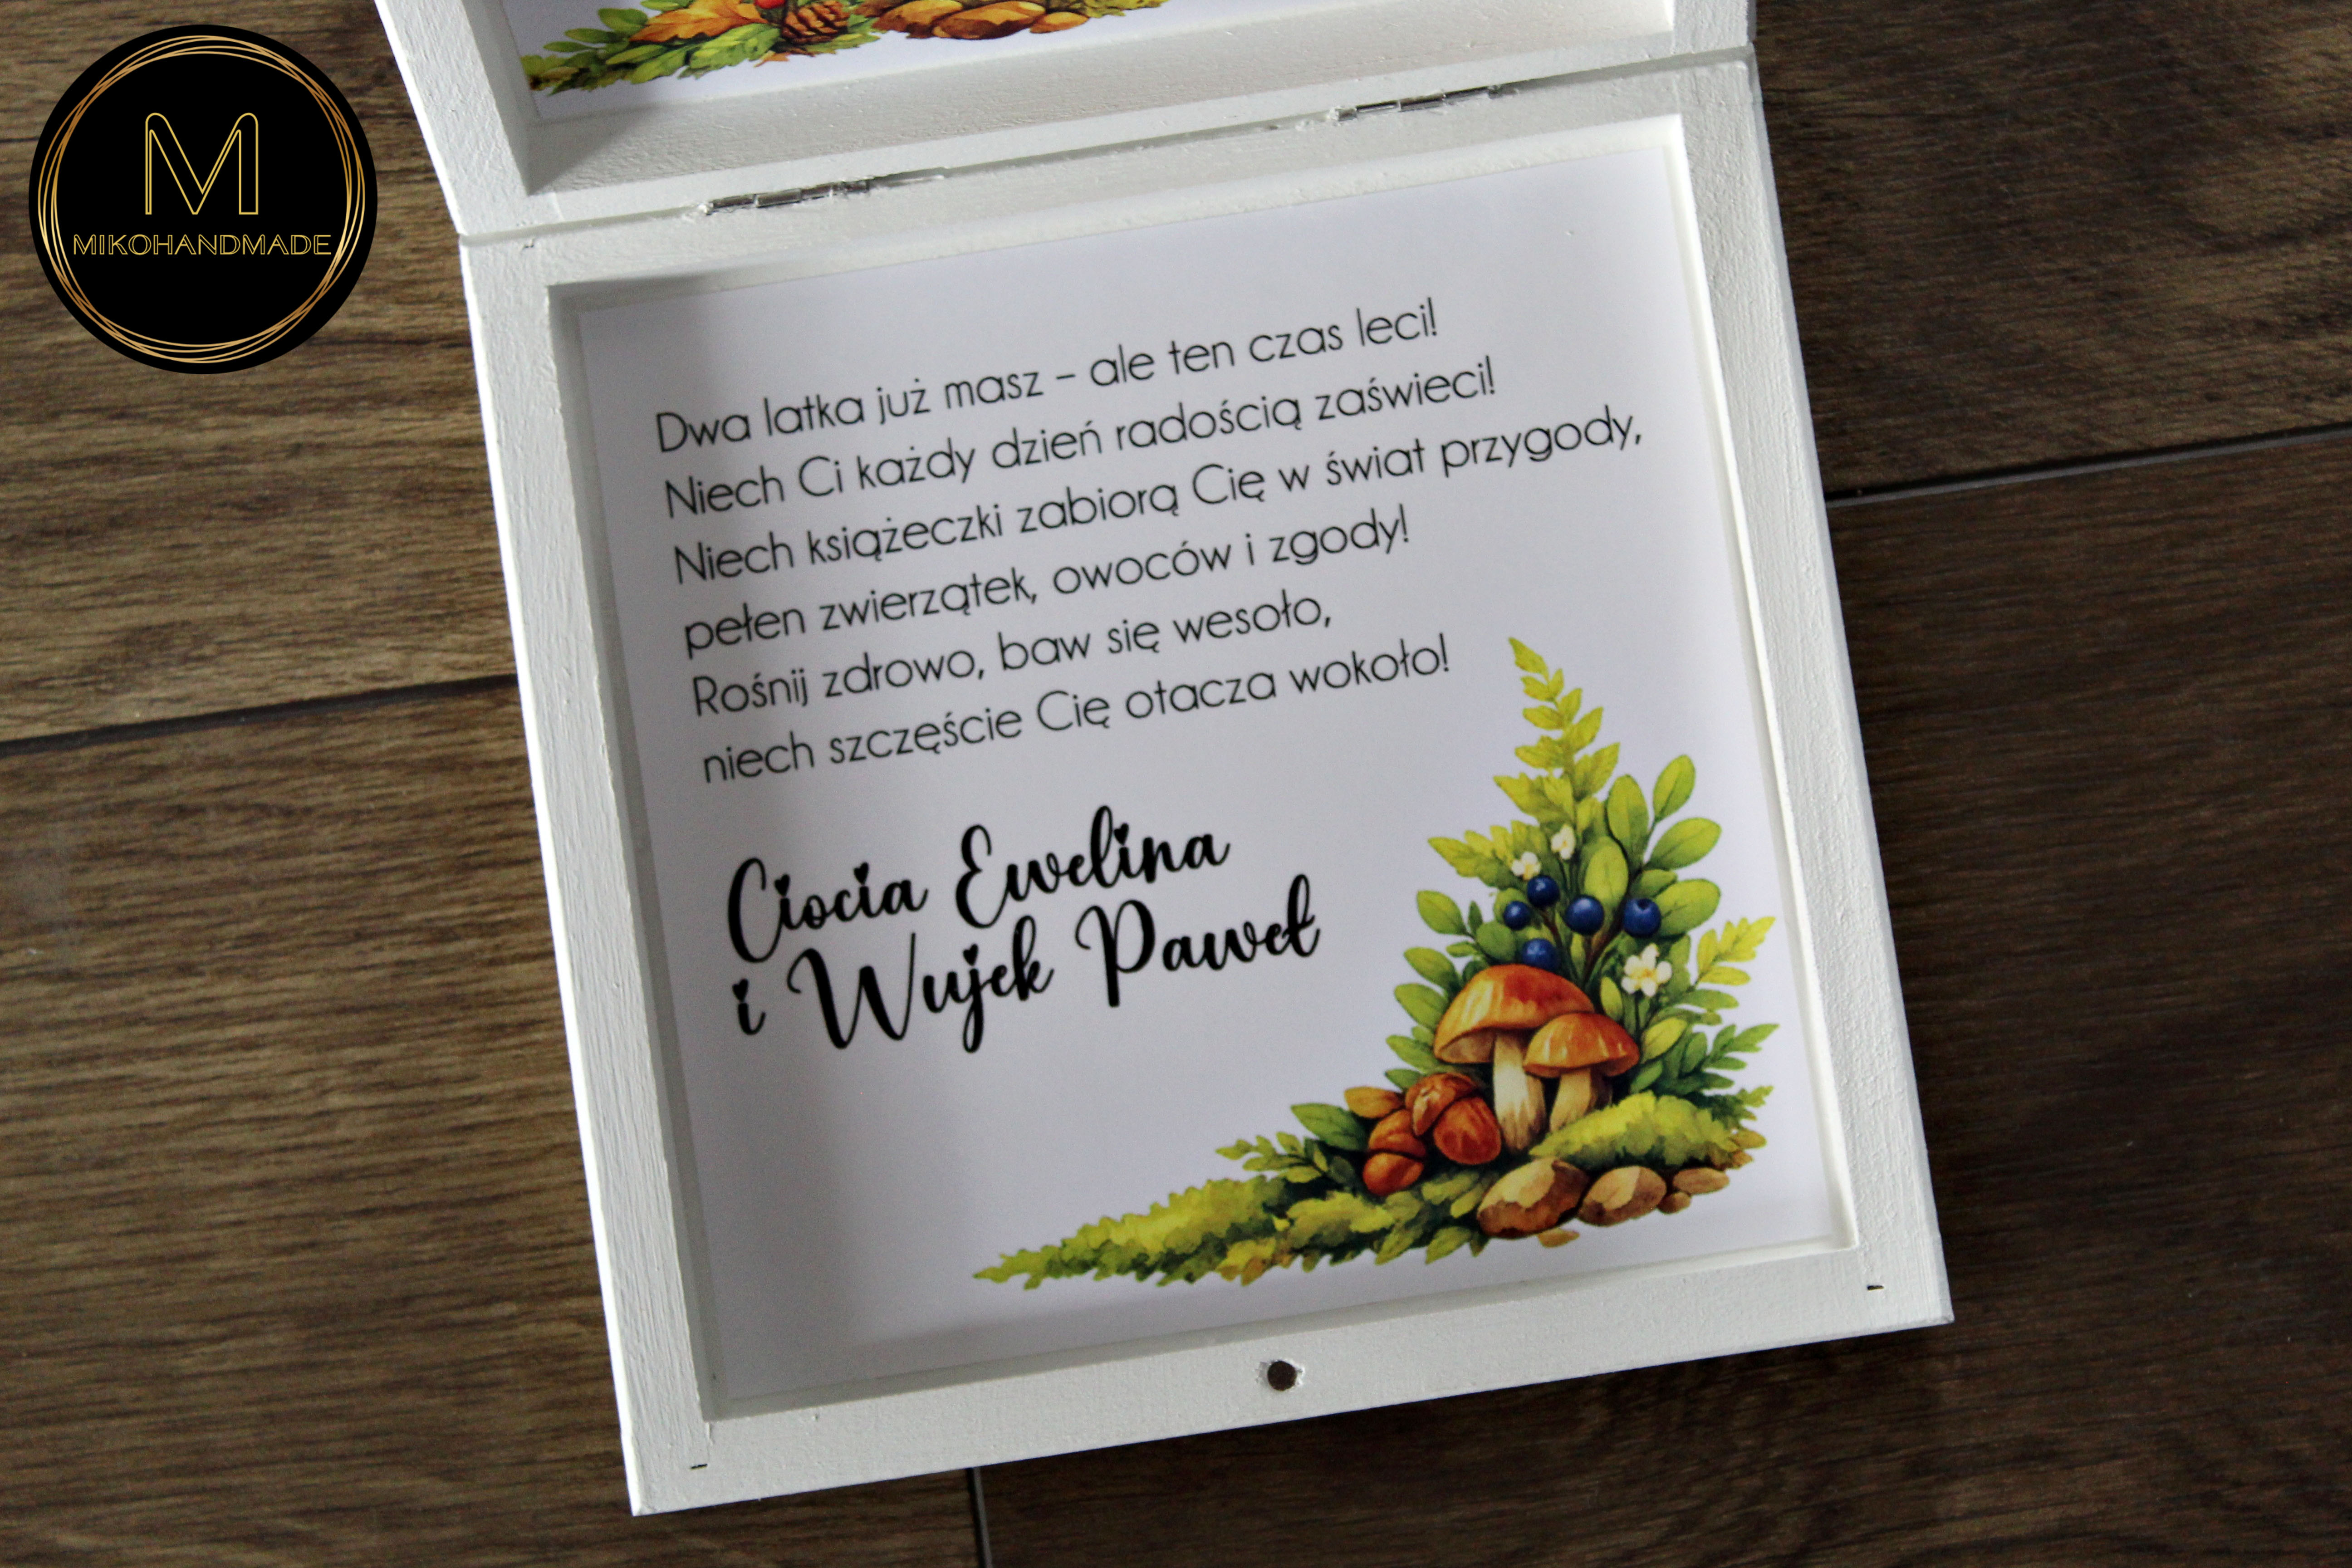 M
MIKOHANDMADE
Dwa latka już masz – ale ten czas leci!
Niech Ci każdy dzień radością zaświeci!
Niech książeczki zabiorą Cię w świat przygody,
pełen zwierzątek, owoców i zgody!
Rośnij zdrowo, baw się wesoło,
niech szczęście Cię otacza wokoło!
Ciocia Ewelina
i Wujek Paweł